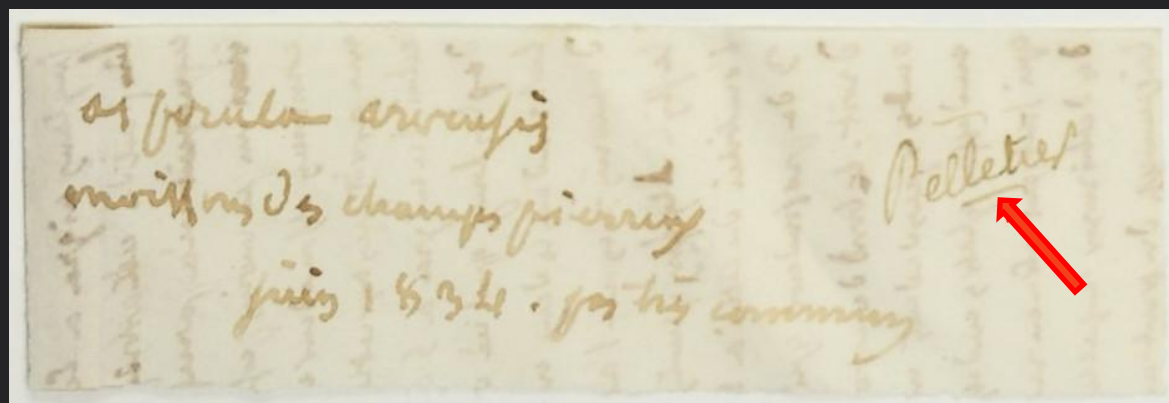 asperula arvensis
moissons des champs pierreux
juin 1834. pas très commun
Pelletier